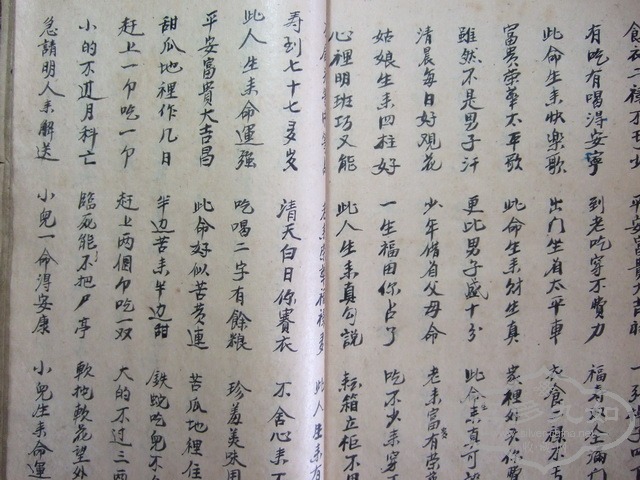 平安富貴大吉昌
有吃有喝得安寧 到老吃穿不費力 福
此命生来快樂歌 出門坐着太平車 衣食二
富貴榮華太平歌 此命生来財生真 家裡好歹你費
雖然不是男子汗 更比男子盛十分 此命生来真可
清晨每日好观花 少年借着父母命 老来富有荣
姑娘生来四柱好 一生福田你占了 吃不少来穿
心裡明班巧又能 此人生来真勾說 箱立柜不
此人生来有
寿到七十七多岁 清天白日你賽衣 不舍心来
此人生来命運強 吃喝二字有餘粮 珍羞美味用
平安富貴大吉昌 此命好似苦黄連 苦瓜地裡住
甜瓜地裡作几日 半边苦来半边甜 鉄蛇吃兒不
赶上一个吃一个 赶上两個吃一双 大的不过三两
小的不过月科亡 臨死能不把尸亭 軟抱軟花望外
急請明人来解送 小兒一命得安康 小兒生来命運